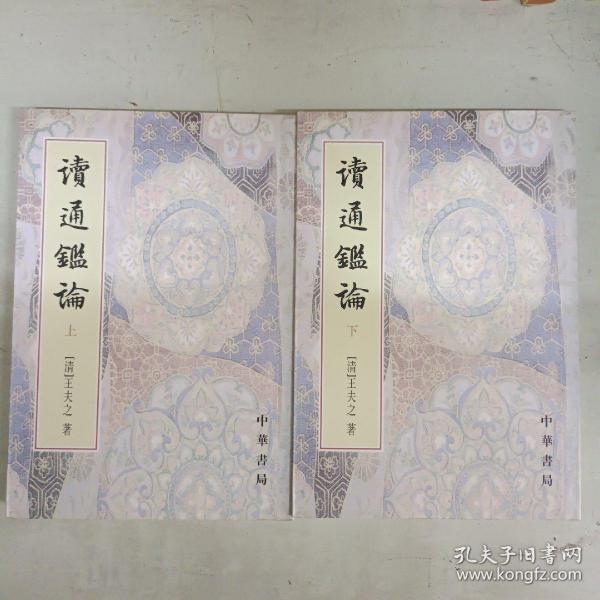 讀通鑑論
上
[清]王夫之 著
中華書局
讀通鑑論
下
[清]王夫之 著
中華書局
孔夫子旧书网
www.kongfz.com